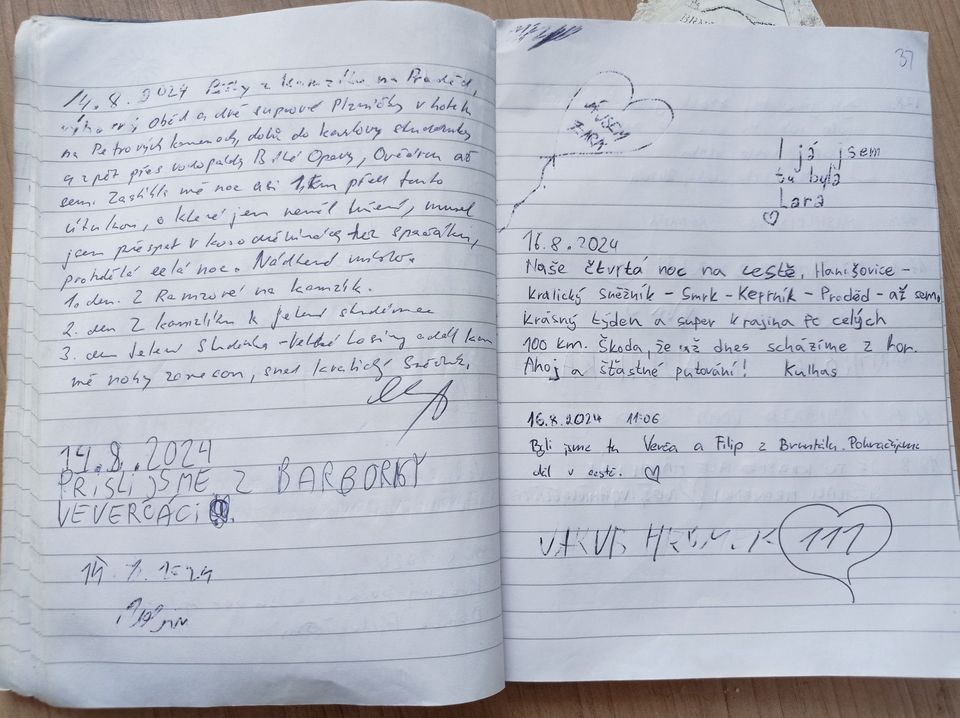 14.8.2024 z Kamzíka na Praděd,
oběd a dvě suprové Plzničky v hotelu
na Petrových kamenech, dolů do karlovy studánky
a zpět přes vodopády Bílé Opavy, Ovčárnu až
sem. Zastihla mě noc asi 1km před touto
útulnou, o které jsem neměl tušení, musel
jsem přespat v bez spacáku,
celá noc. Nádherné místo.
1. den. Z Ramzové na kamzík.
2. den Z kamzíku k Jelení studánce
3. den Jelení Studánka - Velké Losiny a dál kam
mě nohy zanesou, snad kralický Sněžník.
14.8.2024
PŘIŠLI JSME Z BARBORKY
VEVERČÁCI
37
JÁ JSEM
I já jsem
tu byla
Lara
16.8.2024
Naše čtvrtá noc na cestě, Hanušovice -
kralický sněžník - Smrk - Keprník - Praděd - až sem.
Krásný týden a super krajina po celých
100 km. Škoda, že už dnes scházíme z hor.
Ahoj a šťastné putování! Kulhas
16.8.2024 11:06
Byli jsme tu Verča a Filip z Bruntálu. Pokračujeme
dál v cestě. ♡
111